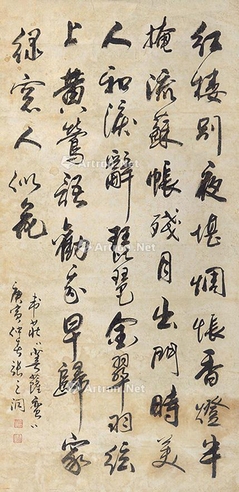 红楼別夜堪惆悵香燈半
掩流蘇帳殘月出門時美
人和淚辭琵琶金翠羽絃
上黄鶯語勸我早歸家
綠窗人似花
韋莊菩薩蠻
庚寅仲春張之洞
Artron.Net